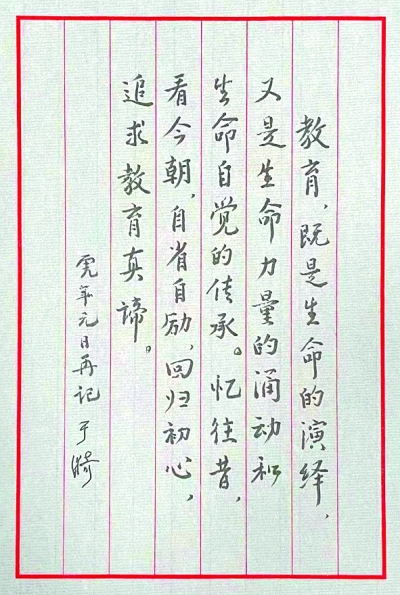 教育，既是生命的演绎，
又是生命力量的涌动和
生命自觉的传承。忆往昔，
看今朝，自省自励，回归初心，
追求教育真谛。
年元日再记 于漪